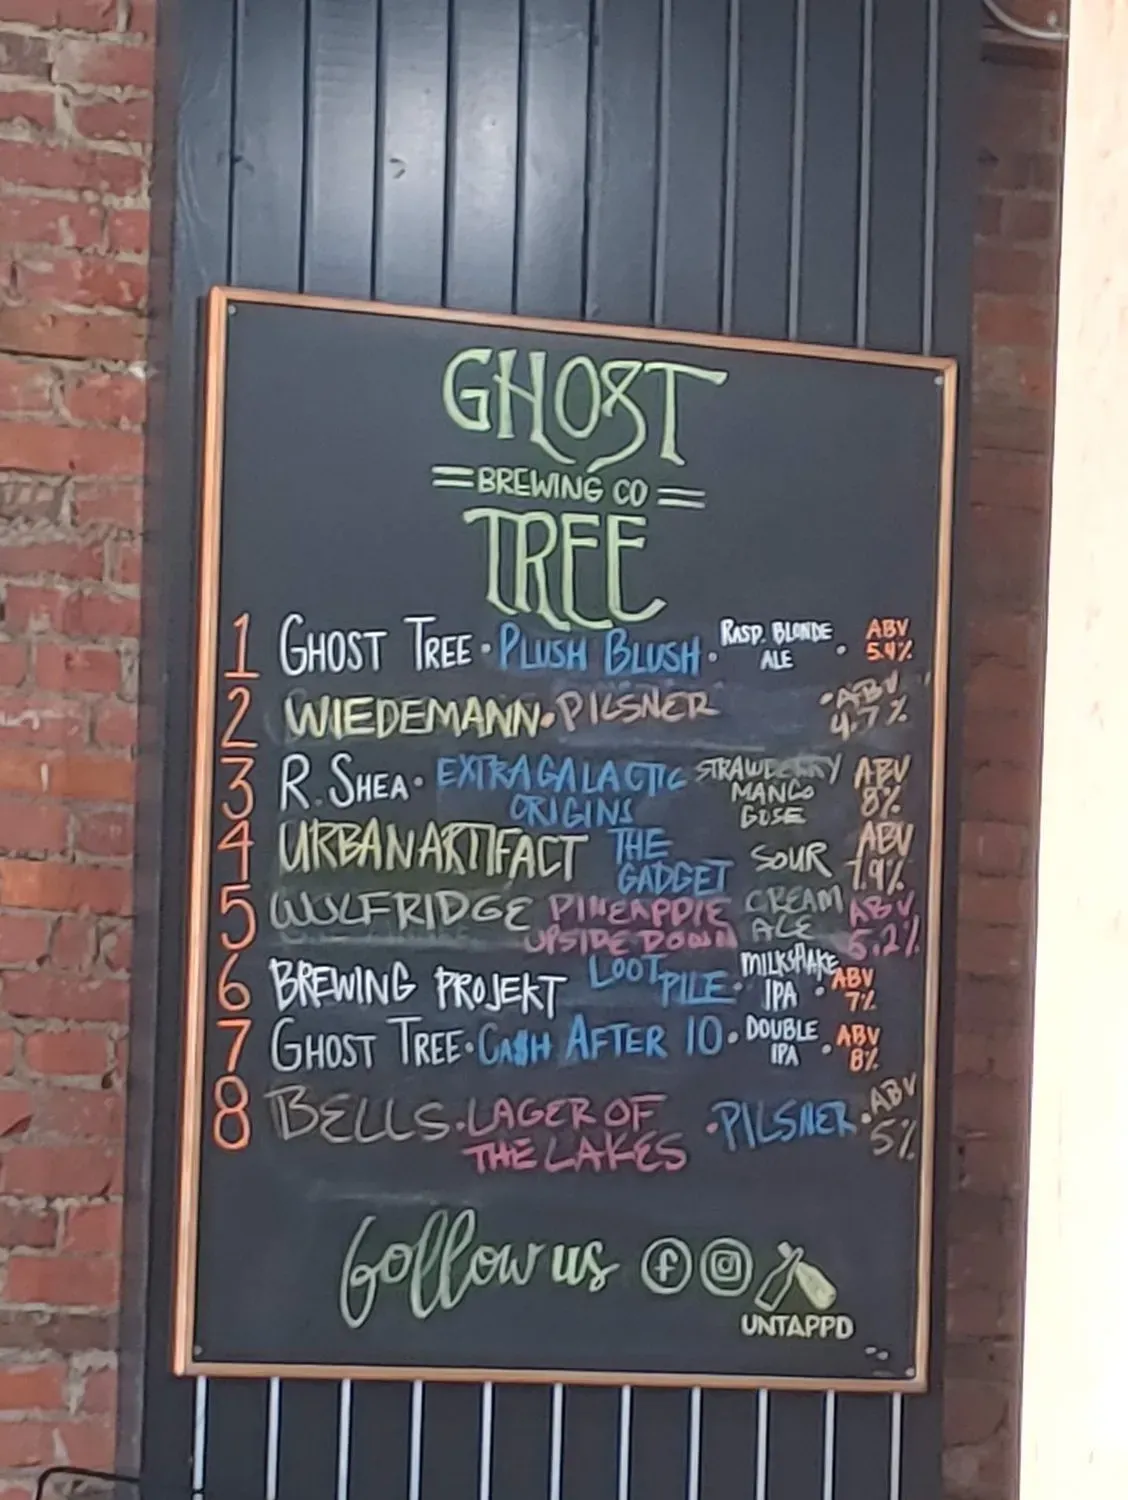 GHOST
BREWING CO
TREE
1 GHOST TREE • PLUSH BLUSH • RASP. BLONDE ALE • ABV 5.4%
2 WIEDEMANN • PILSNER • ABV 4.7%
3 R. SHEA • EXTRAGALACTIC ORIGINS STRAWBERRY MANGO GOSE ABV 8%
4 URBAN ARTIFACT THE GADGET SOUR ABV
5 WOLFRIDGE PINEAPPLE UPSIDE DOWN CREAM ALE ABV
6 BREWING PROJEKT LOOT PILE • MILKSHAKE IPA • ABV 7%
7 GHOST TREE • CA$H AFTER 10 • DOUBLE IPA • ABV 8%
8 BELLS • LAGER OF THE LAKES • PILSNER • ABV 5%
follow us
UNTAPPD